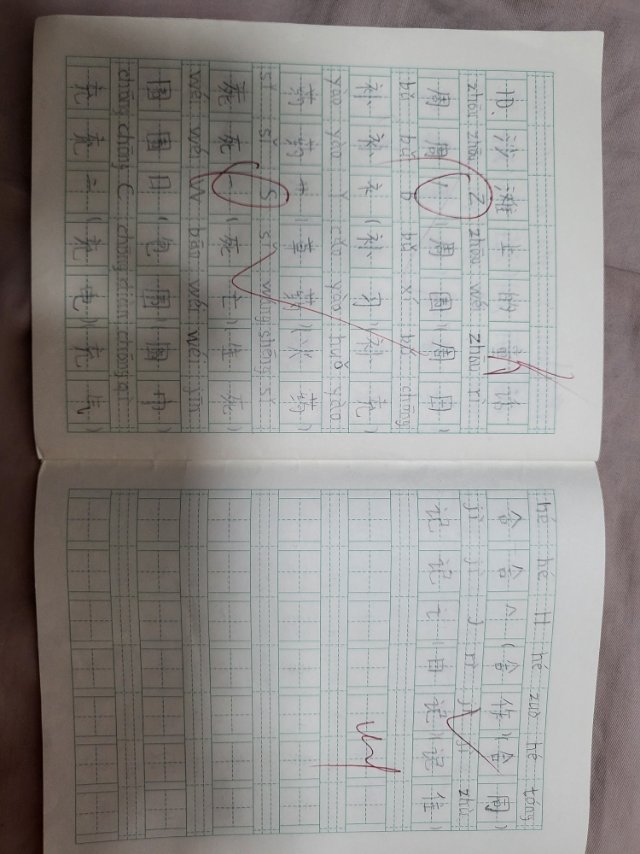 沙 滩 上 的
zhōu zhōu Z zhōu wéi zhōu rì
周 周 冂 (周 围)(周 日)
bǔ bǔ B bǔ xí bǔ chōng
补 补 衤 (补 习)(补 充)
yào yào Y cǎo yào huǒ yào
药 药 艹 (草 药)(火 药)
sǐ sǐ S sǐ wáng shēng sǐ
死 死 一 (死 亡)(生 死)
wéi wéi W bāo wéi wéi jīn
围 围 囗 (包 围)(围 巾)
chōng chōng C chōng diàn chōng qì
充 充 亠 (充 电)(充 气)
hé hé H hé zuò hé tóng
合 合 人 (合 作)(合 同)
jì jì J rì jì jì zhù
记 记 讠 日 记)(记 住)